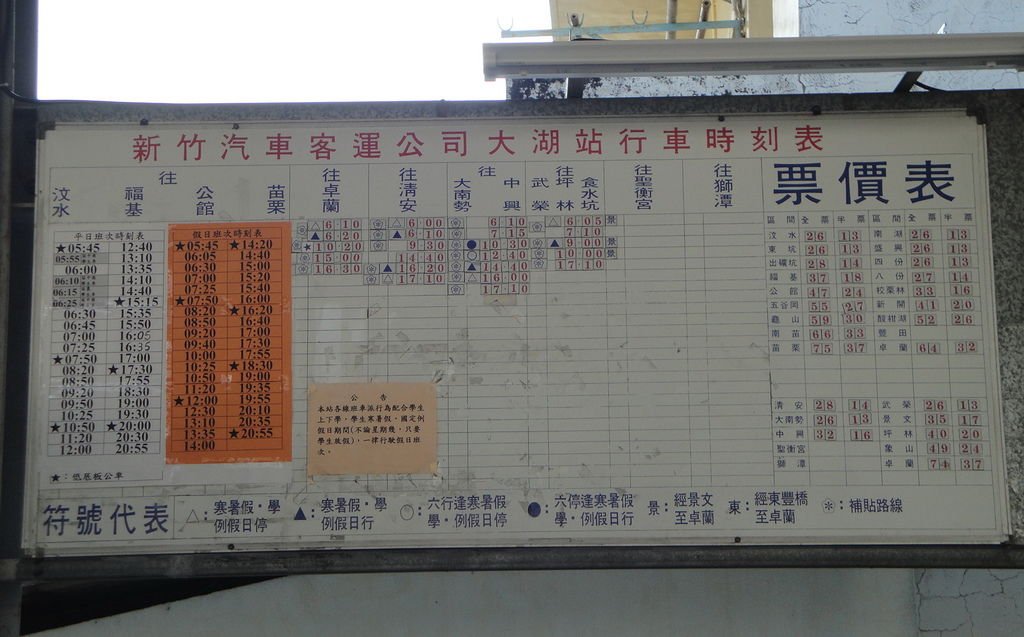 新竹汽車客運公司大湖站行車時刻表
往
汶水 福基 公館 苗栗
往卓蘭
往清安
往
大南勢 中興
往
武榮 坪林 食水坑
往聖衡宮
往獅潭
平日班次時刻表
★05:45 12:40
05:55 13:10
06:00 13:35
06:10 14:10
06:15 14:40
06:25 ★15:15
06:30 15:35
06:45 15:50
07:00 16:05
07:25 16:35
★07:50 17:00
★08:20 ★17:30
08:50 17:55
09:20 18:30
09:50 19:00
10:25 19:30
★10:50 ★20:00
11:20 20:30
12:00 20:55
★：低底板公車
假日班次時刻表
★05:45 ★14:20
06:05 14:40
06:30 15:00
07:00 15:20
07:25 15:40
★07:50 16:00
08:20 ★16:20
08:50 16:40
09:20 17:00
09:40 17:30
10:00 17:55
10:25 ★18:30
10:50 19:00
11:20 19:35
★12:00 19:55
12:30 20:10
13:10 20:35
13:35 ★20:55
14:00
△ 6 10
▲ 6 20
★ 10 20
15 00
16 30
△ 6 00
▲ 6 10
9 30
14 40
▲ 16 20
△ 17 10
6 10
7 15
● 10 30
○ 12 30
▲ 14 40
△ 16 00
17 10
△ 6 05 景
7 10
▲ 9 00 景
14 00 景
17 10
公 告
本站各線班車派行為配合學生
上下學，學生寒暑假，國定例
假日期間(不論星期幾，只要
學生放假)，一律行駛假日班
次。
票價表
區間 全票 半票 區間 全票 半票
汶水 26 13 南湖 26 13
東坑 26 13 盛興 26 13
出礦坑 28 14 四份 26 13
福基 37 18 八份 27 14
公館 47 24 校栗林 33 16
五谷岡 55 27 新開 41 20
龜山 59 30 酸柑湖 52 26
南苗 66 33 豐田
苗栗 75 37 卓蘭 64 32
清安 28 14 武榮 26 13
大南勢 26 13 景文 35 17
中興 32 16 坪林 40 20
聖衡宮 象山 49 24
獅潭 卓蘭 74 37
符號代表
△：寒暑假・學例假日停
▲：寒暑假・學例假日行
○：六行逢寒暑假學・例假日停
●：六停逢寒暑假學・例假日行
景：經景文至卓蘭
東：經東豐橋至卓蘭
：補貼路線